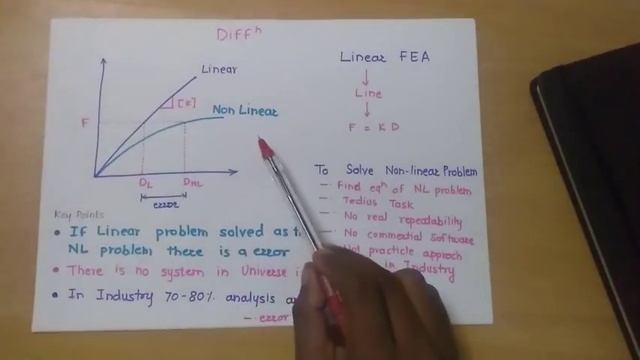 Diffⁿ
Linear
[K]
Non Linear
F
D_L
D_NL
error
Linear FEA
Line
F = K D
To Solve Non-linear Problem
- Find eqⁿ of NL problem
- Tedius Task
- No real repeatability
- No commertial Software
Not practicle approch
in Industry
Key Points
• If Linear problem solved as
NL problem there is a error
• There is no system in Universe
• In Industry 70-80% analysis
- error